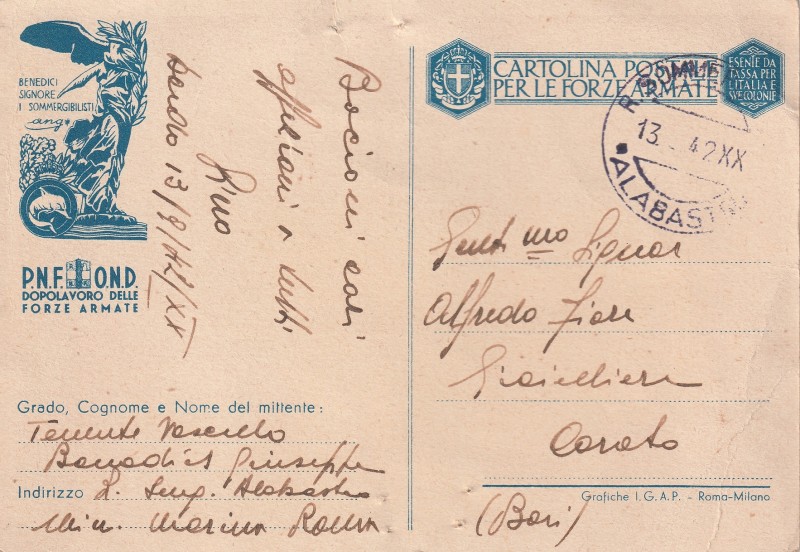 BENEDICI
SIGNORE
I SOMMERGIBILISTI
P.N.F. O.N.D.
DOPOLAVORO DELLE
FORZE ARMATE
Bacioni cari
affezioni a tutti
Pino
13/9/42/XX
Grado, Cognome e Nome del mittente:
Tenente Vascello
Giuseppe
Indirizzo R. Smg. Alabastro
Min. Marina Roma
CARTOLINA POSTALE
PER LE FORZE ARMATE
ESENTE DA
TASSA PER
L'ITALIA E
SUE COLONIE
R. SOMMERG
13. 42XX
ALABASTRO
Gent mo Signor
Alfredo Fiore
Gioielliere
Corato
(Bari)
Grafiche I.G.A.P. - Roma-Milano